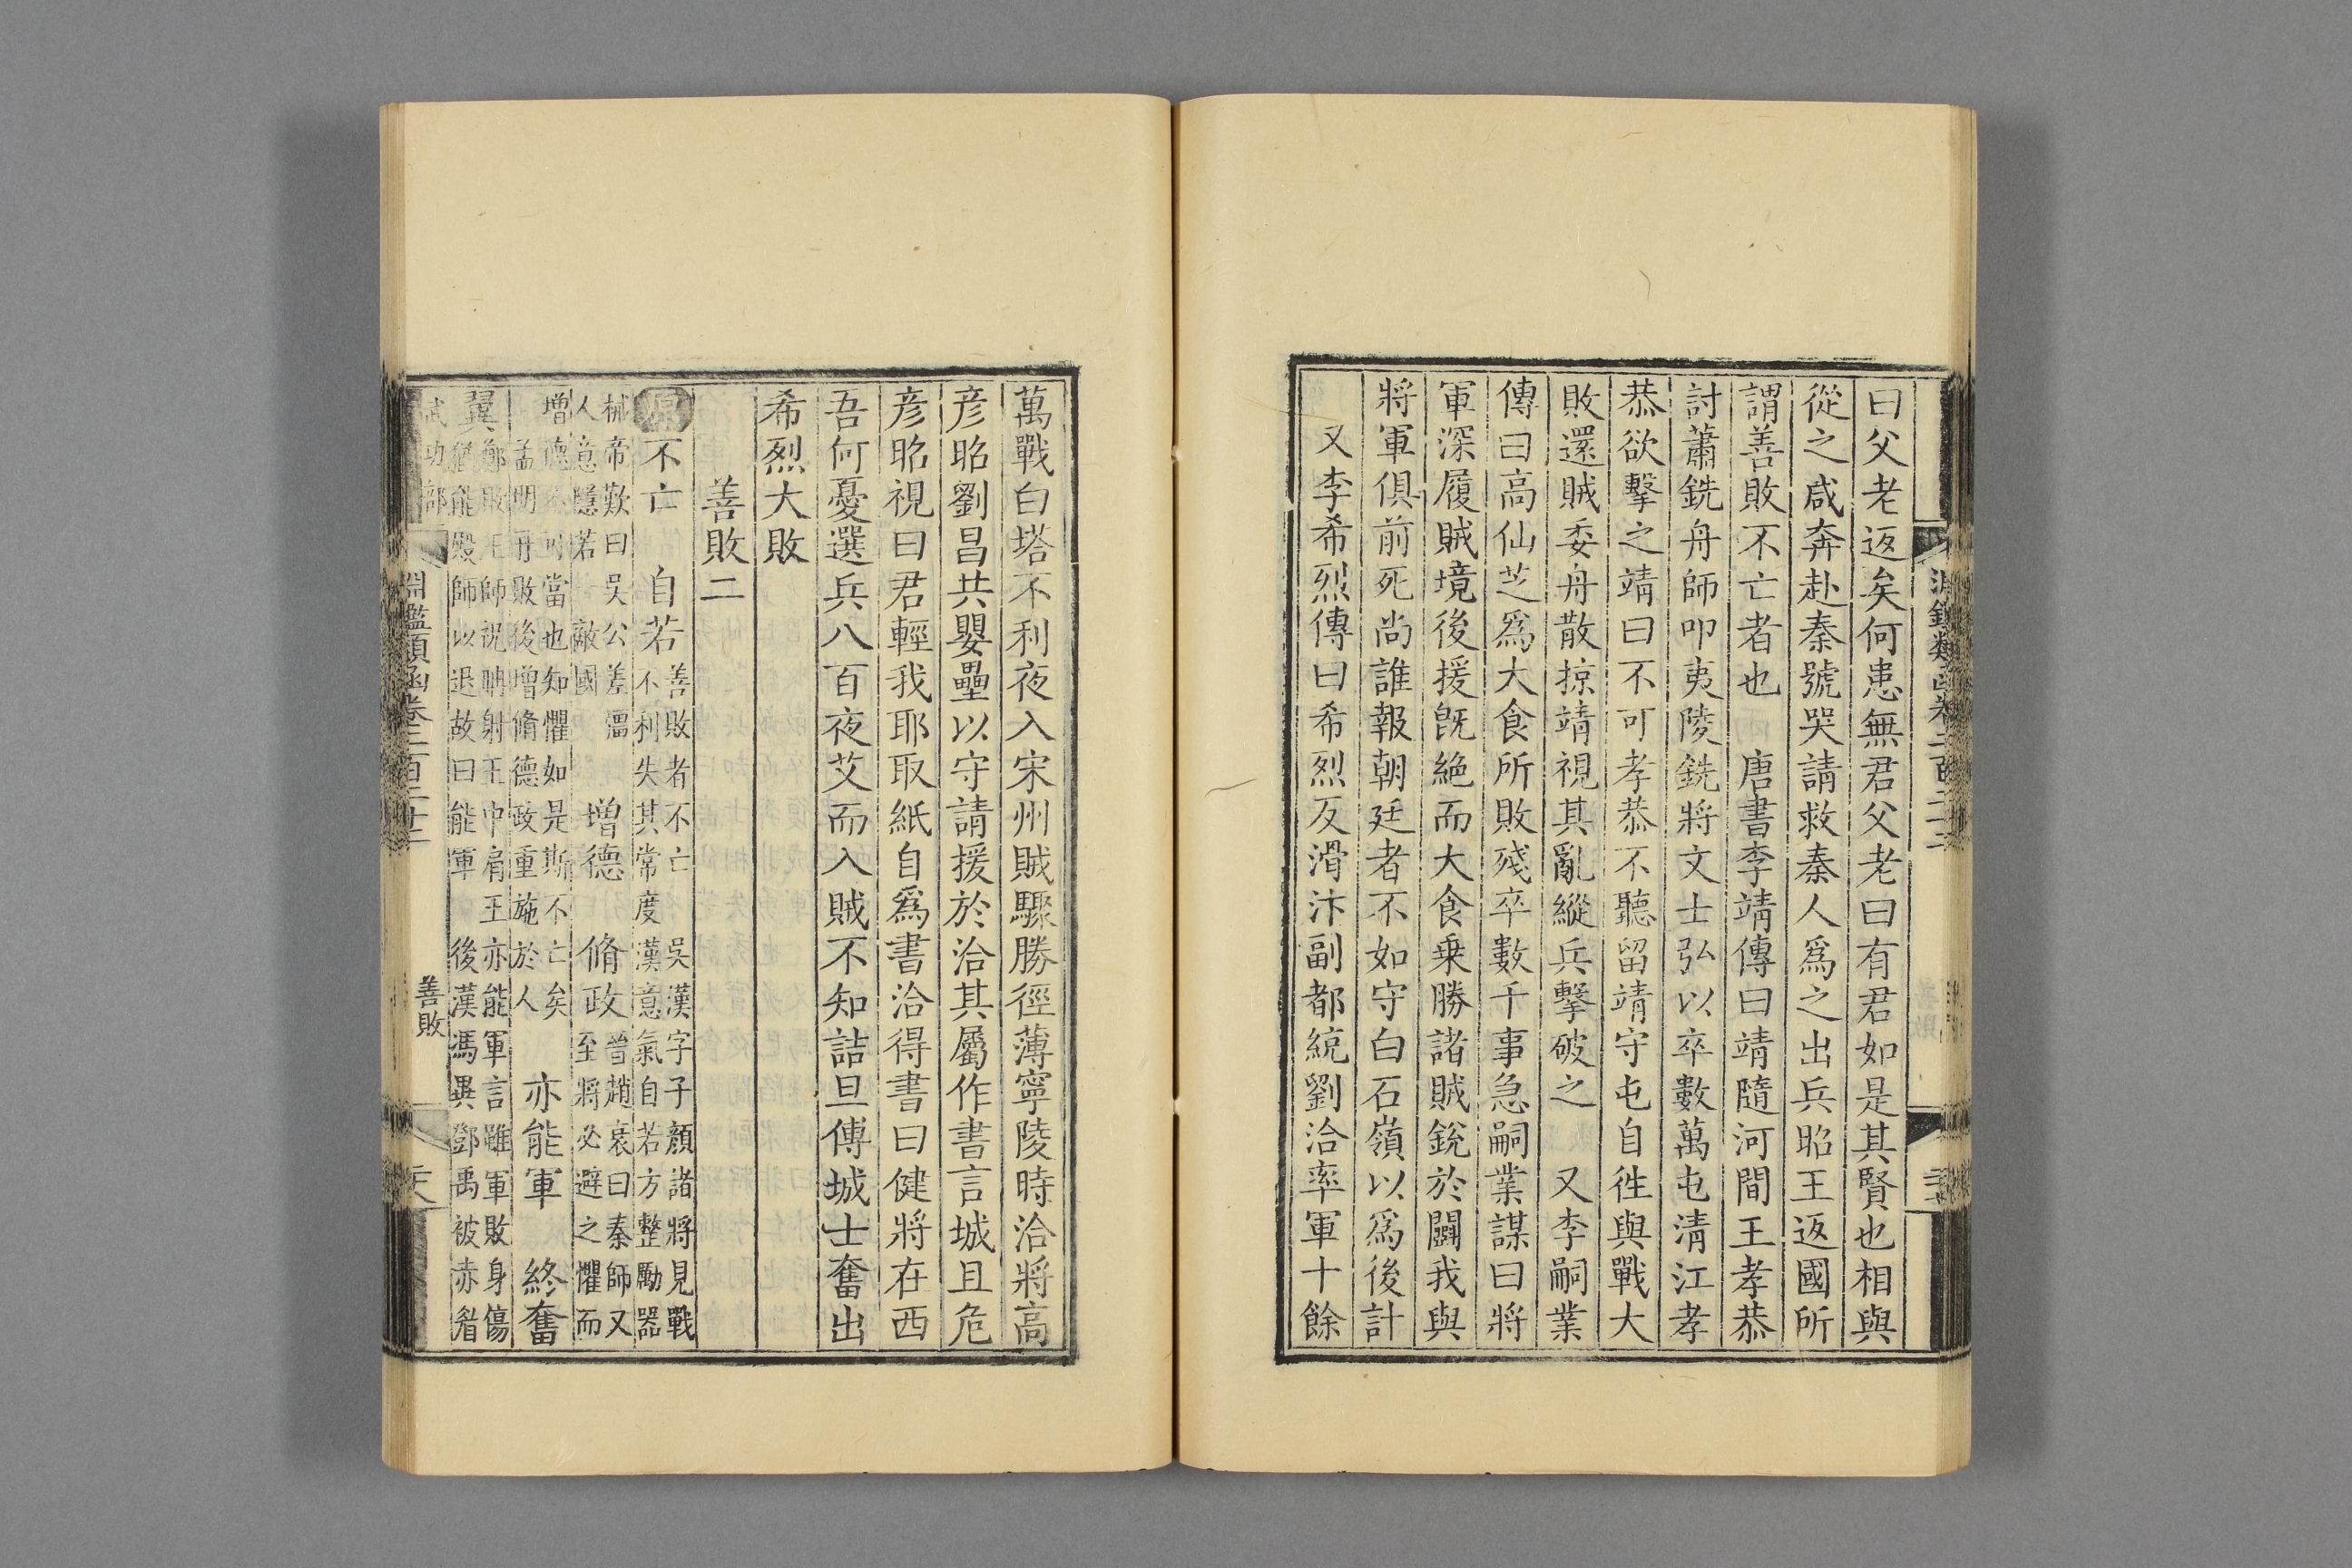 曰父老返矣何患無君父老曰有君如是其賢也相與
從之咸奔赴秦號哭請救秦人爲之出兵昭王返國所
謂善敗不亡者也　唐書李靖傳曰靖隨河間王孝恭
討蕭銑舟師叩夷陵銑將文士弘以卒數萬屯清江孝
恭欲擊之靖曰不可孝恭不聽留靖守屯自徃與戰大
敗還賊委舟散掠靖視其亂縱兵擊破之　又李嗣業
傳曰高仙芝爲大食所敗殘卒數千事急嗣業謀曰將
軍深履賊境後援旣絶而大食乗勝諸賊銳於鬬我與
將軍俱前死尚誰報朝廷者不如守白石嶺以爲後計
又李希烈傳曰希烈反滑汴副都統劉洽率軍十餘
萬戰白塔不利夜入宋州賊驟勝徑薄寧陵時洽將高
彦昭劉昌共嬰壘以守請援於洽其屬作書言城且危
彦昭視曰君輕我耶取紙自爲書洽得書曰健將在西
吾何憂選兵八百夜艾而入賊不知詰旦傅城士奮出
希烈大敗
善敗二
原　不亡　自若
善敗者不亡　吳漢字子顏諸將見戰
不利失其常度漢意氣自若方整勵器
械帝歎曰吳公差强
人意隱若一敵國
增德　脩政
晉趙衰曰秦師又
至將必避之懼而
增德不可當也知懼如是斯不亡矣
孟明再敗後增脩德政重施於人
亦能軍　終奮
翼
鄭敗王師祝聃射王中肩王亦能軍言雖軍敗身傷
猶能殿師以退故曰能軍　後漢馮異鄧禹被赤眉
武功部
淵鑑類函卷二百二十二
善敗